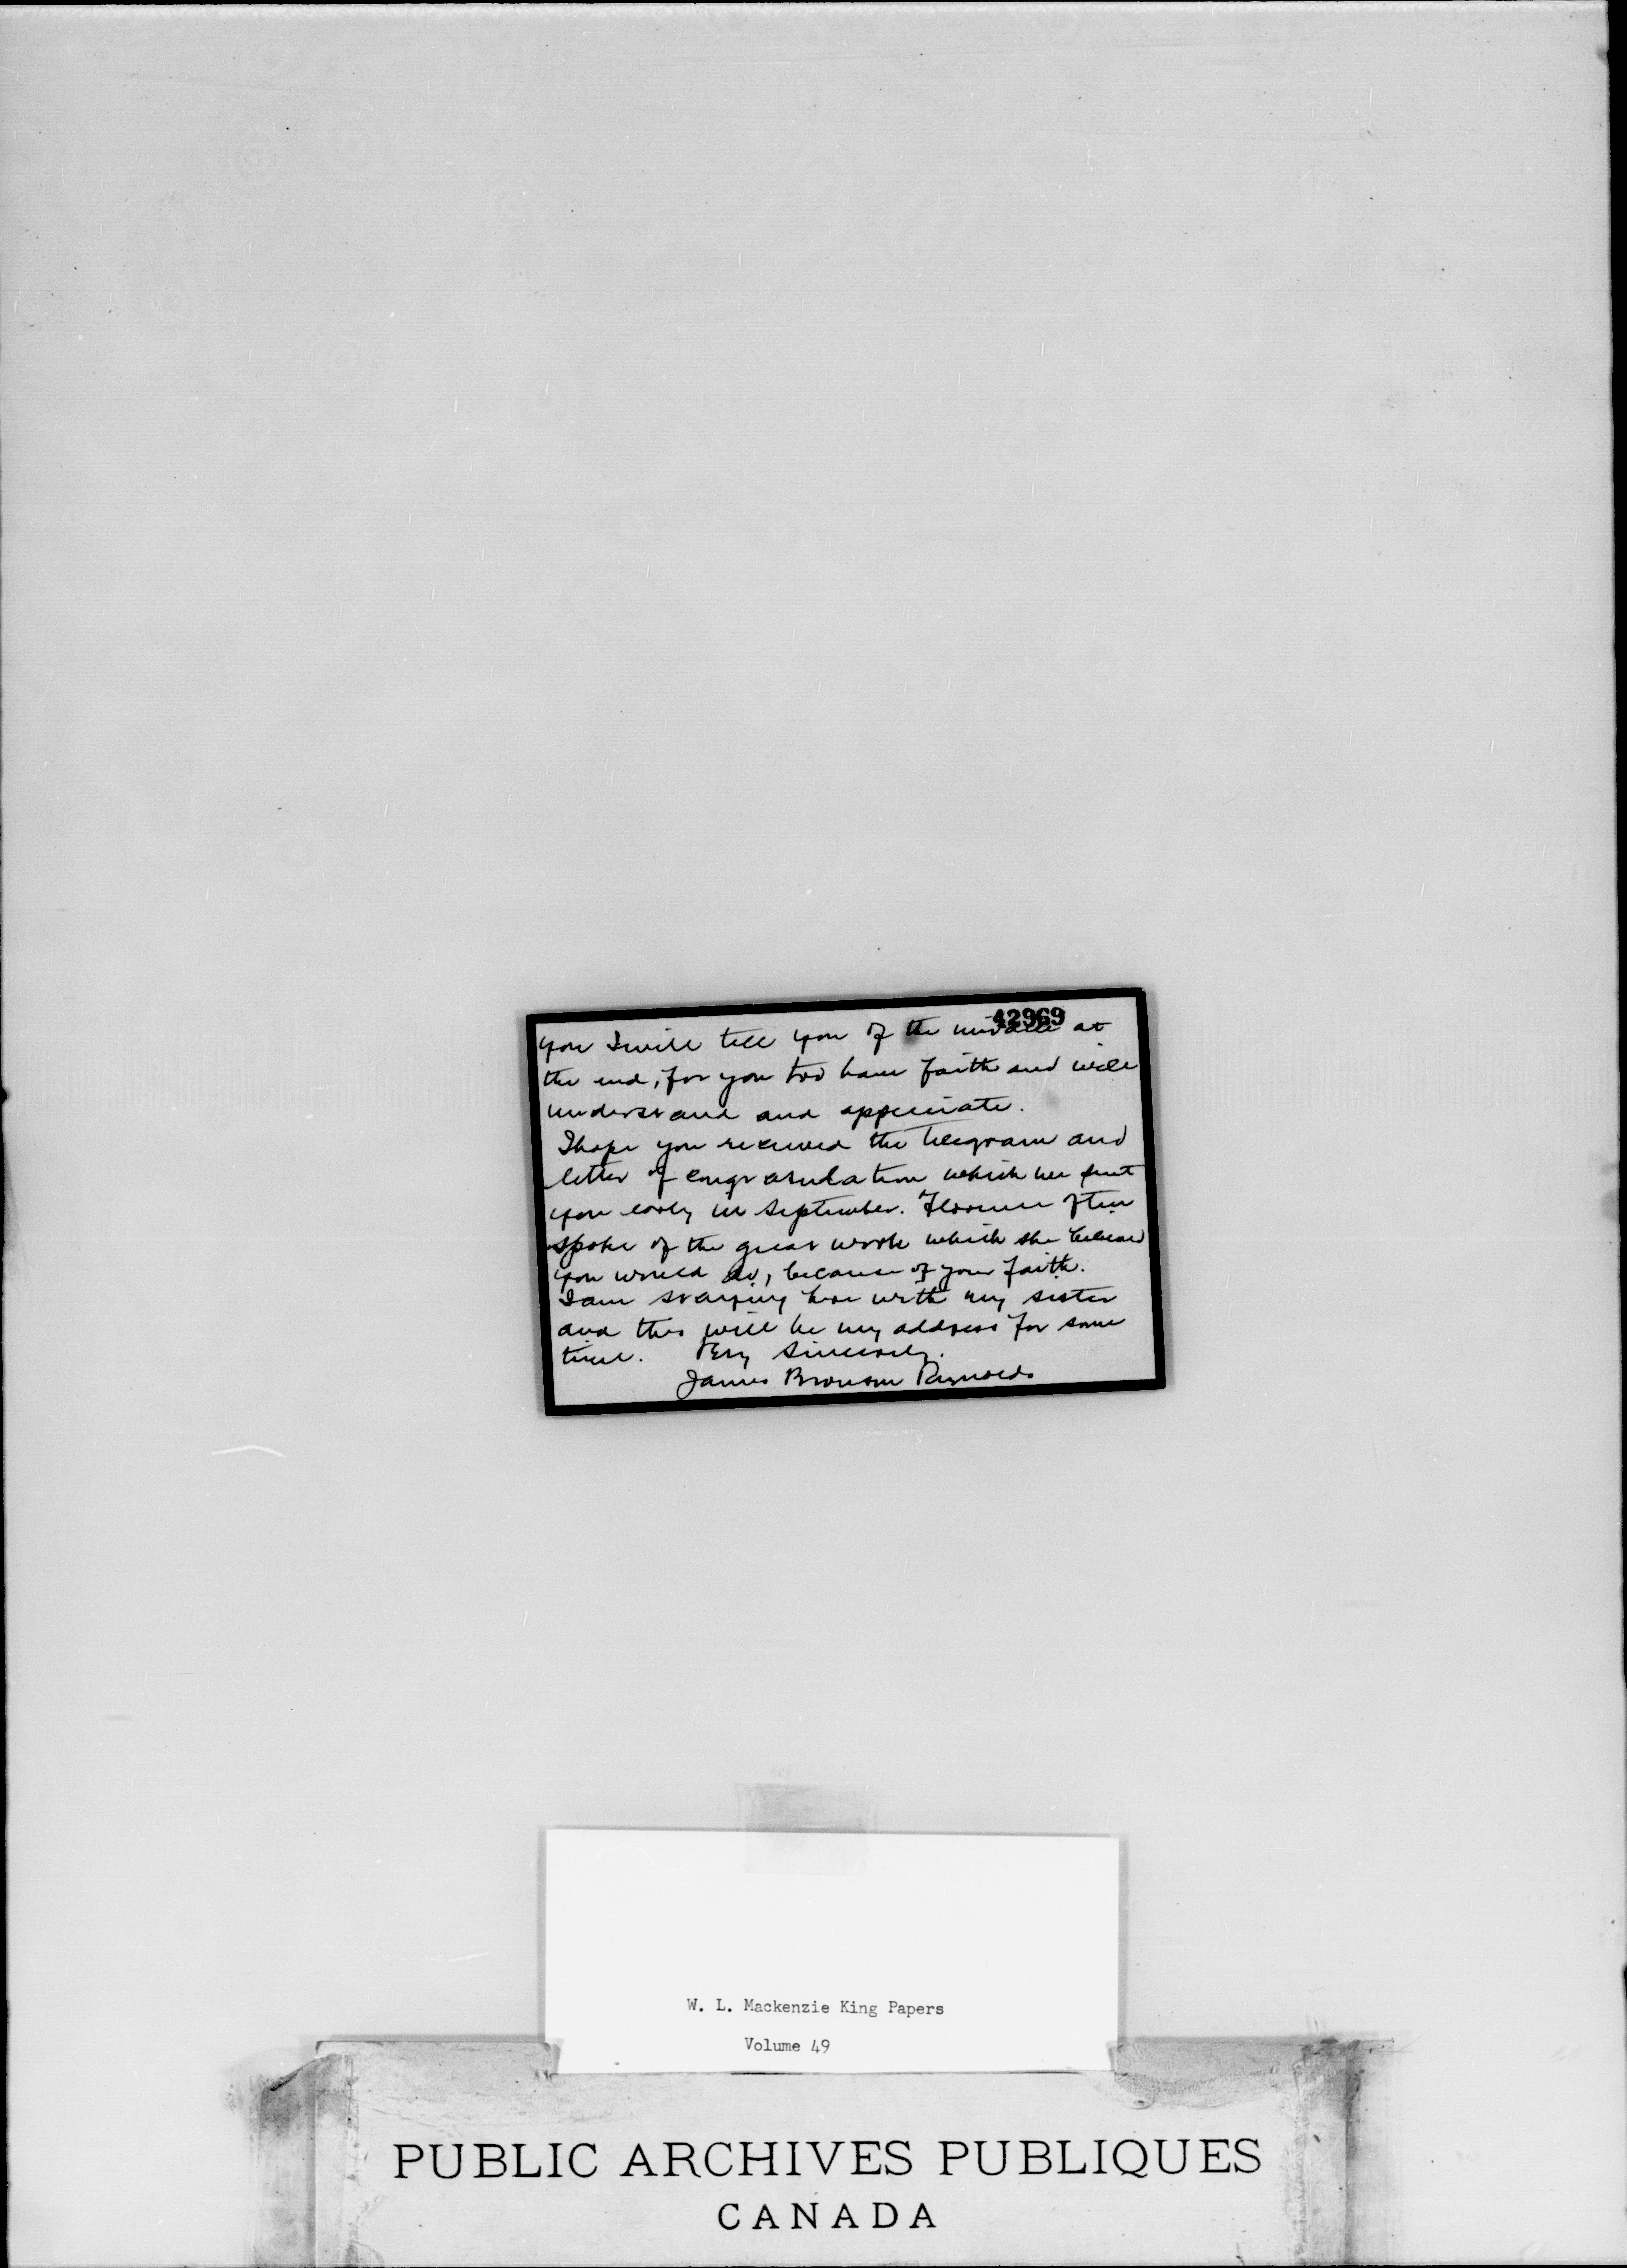 42969
you I will tell you of the miracle at
the end, for you too have faith and will
understand and appreciate.
I hope you received the telegram and
letter of congratulation which we sent
you early in September. Florence often
spoke of the great work which she believed
you would do, because of your faith.
I am staying here with my sister
and this will be my address for some
time. Very Sincerely.
James Bronson Reynolds
W. L. Mackenzie King Papers
Volume 49
PUBLIC ARCHIVES PUBLIQUES
CANADA